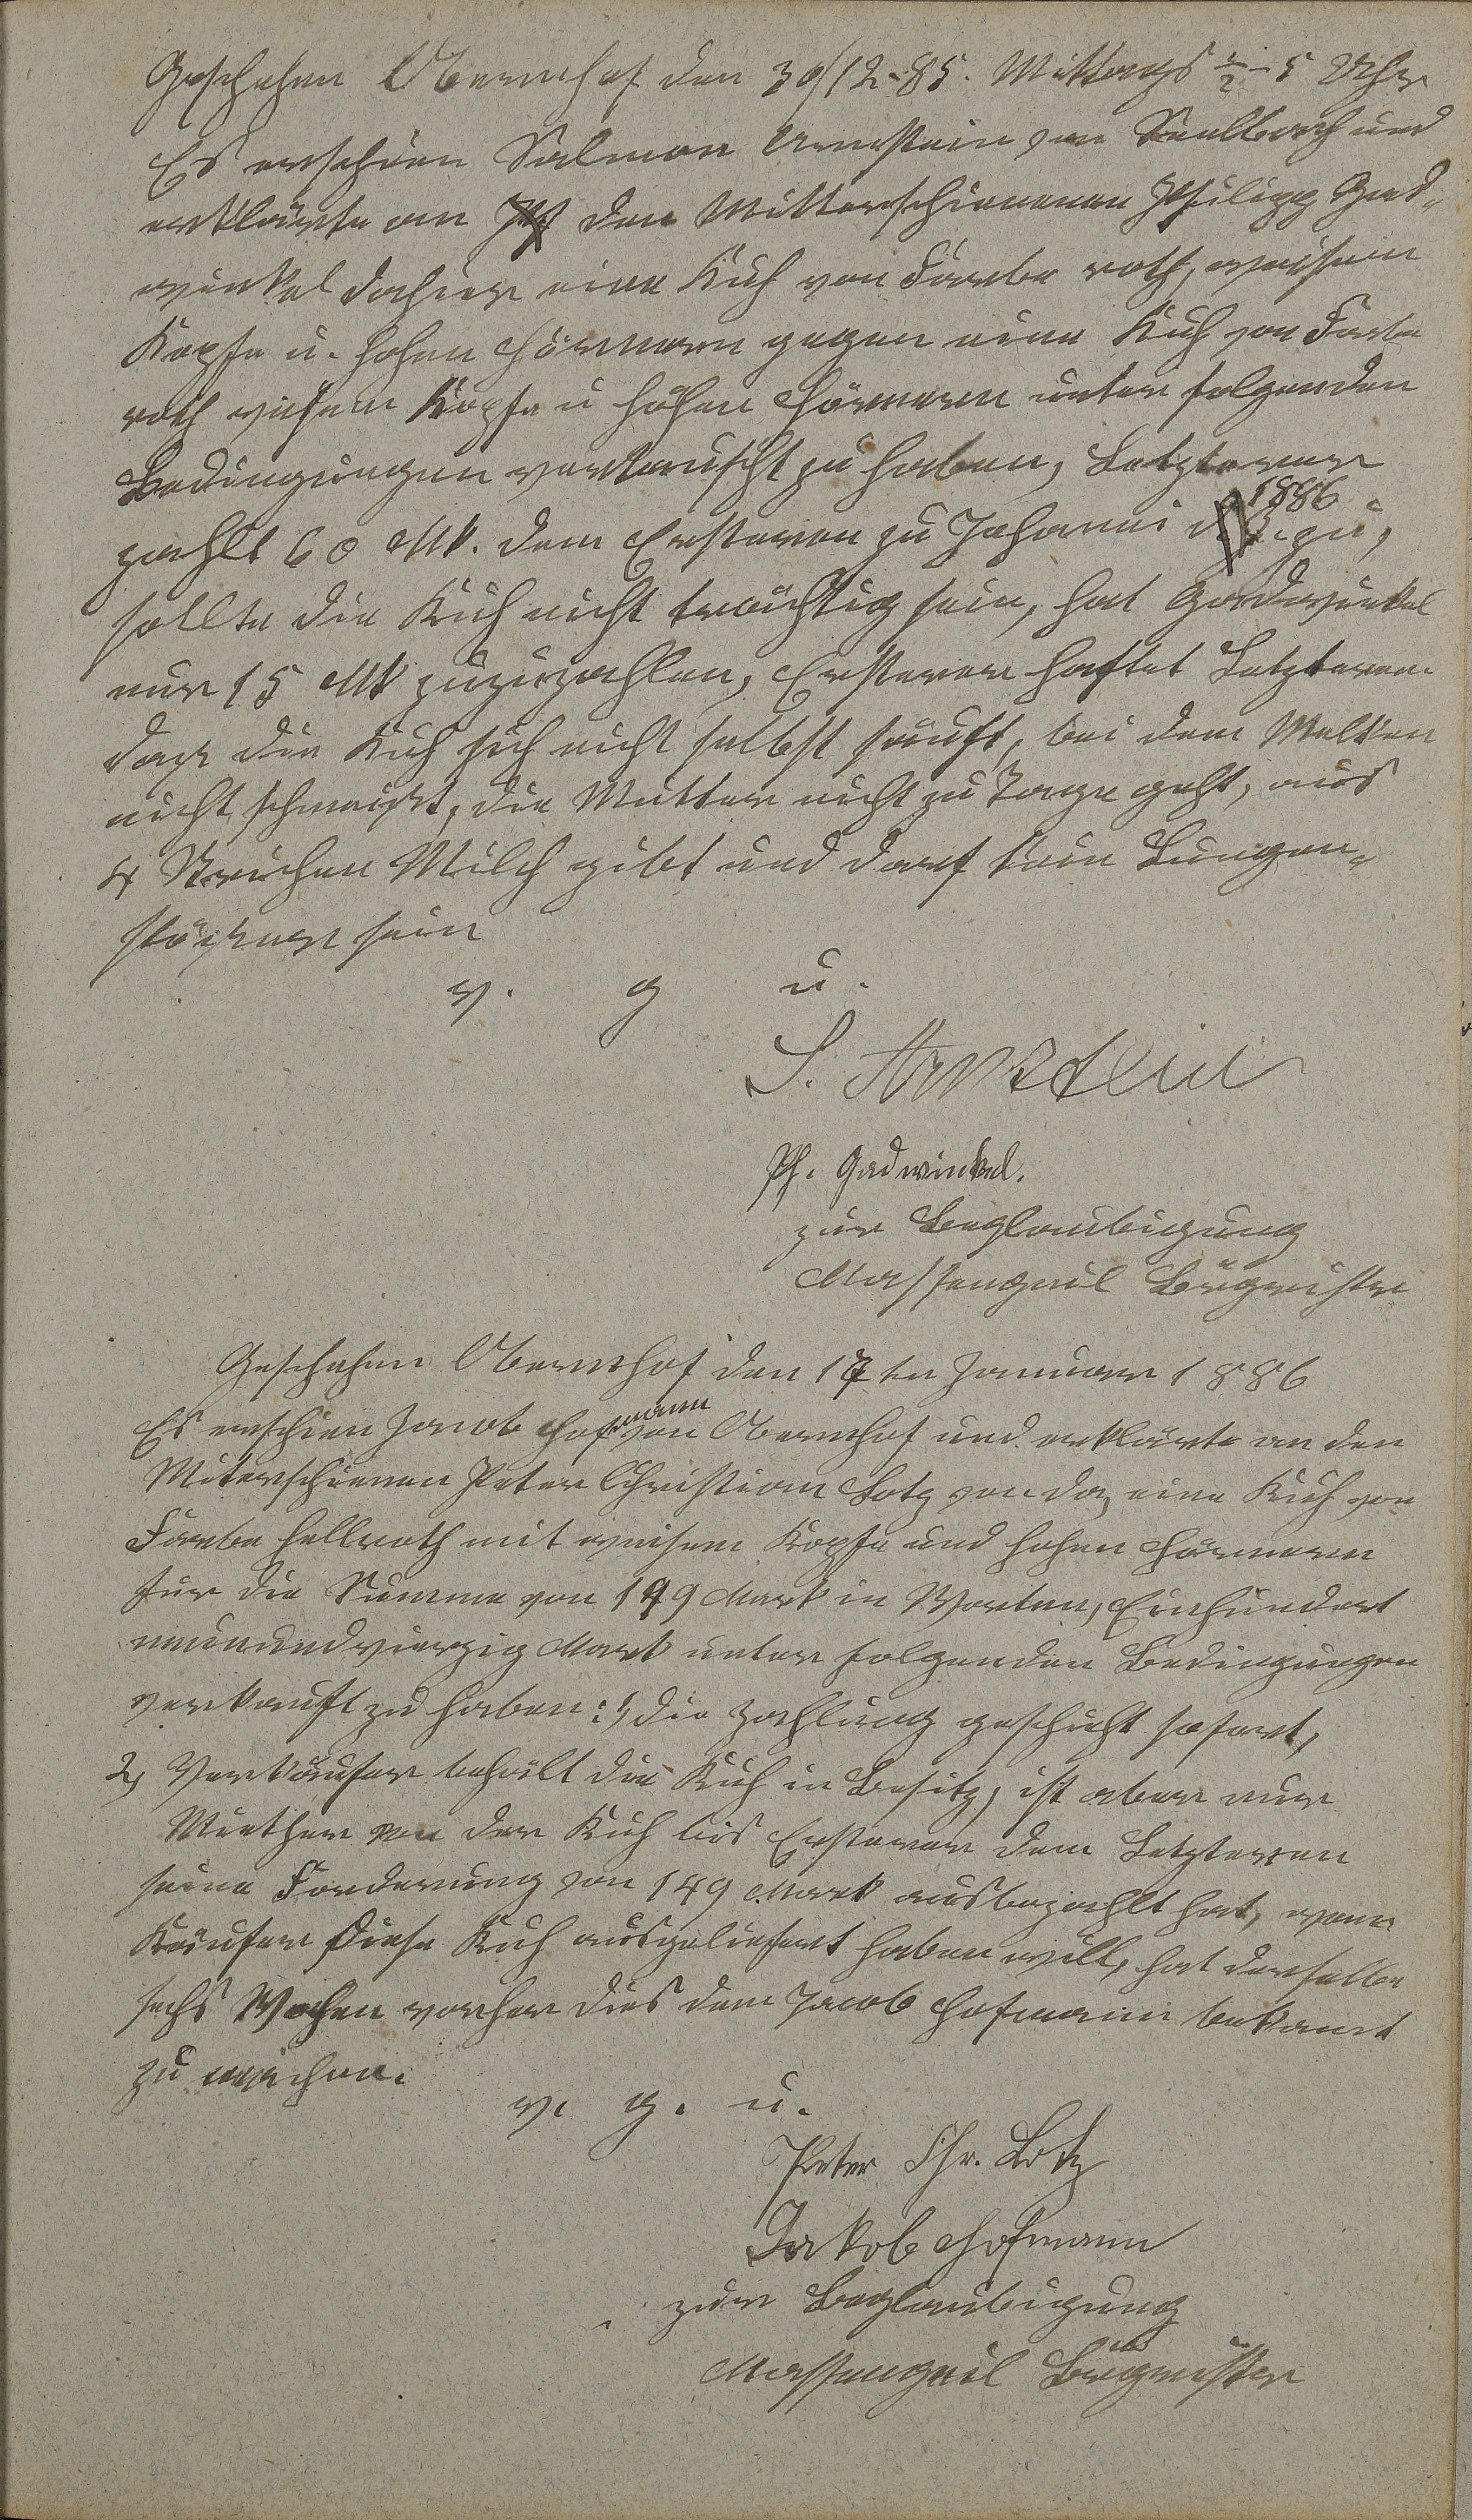 Geschehen Obernhof den 30/12-85. Mittags ½-5 Uhr
Es erschien Salmon Arnstein von Seelbach und
erklärte an den Mitterschienenen Philipp Gad-
winkel dahier eine Kuh von Farbe roth, weisem
Kopfe u. hohen Hörnern gegen eine Kuh von Farbe
roth weisem Kopfe u hohen Hörnern unter folgenden
Bedingungen vertauscht zu haben, Letzterer
zahlt 60 Mk. dem Ersteren zu Johanni 1886 zu,
sollte die Kuh nicht trächtig sein, hat Gadwinkel
nur 15 Mk zuzuzahlen, Ersterer haftet Letzteren
daß die Kuh sich nicht selbst säuft, bei dem Melken
nicht schmeißt, die Mutter nicht zu Tage geht, aus
4 Strichen Milch gibt und darf kein Lungen-
stößer sein
v. g u.
S. Arnstein
Ph. Gadwinkel.
zur Beglaubigung
Massengeil Bürgmeister
Geschehen Obernhof den 17ten Januar 1886
Es erschien Jacob Hofmann von Obernhof und erklärte an den
Miterschienen Peter Christian Lotz von da, eine Kuh von
Farbe hellroth mit weisem Kopfe und hohen Hörnern
für die Summe von 149 Mark in Worten, Einhundert
neunundvierzig Mark unter folgenden Bedingungen
verkauft zu haben: 1, die Zahlung geschieht sofort,
2, Verkäufer behält die Kuh in Besitz, ist aber nur
Miether von der Kuh bis Ersterer dem Letzteren
seine Forderung von 149 Mark ausbezahlt hat, wenn
Käufer diese Kuh ausgeliefert haben will, hat derselbe
sechs Wochen vorher dies dem Jacob Hofmann bekannt
zu machen.
v. g. u.
Peter Chr. Lotz
Jakob Hofmann
zur Beglaubigung
Massengeil Bürgmeister